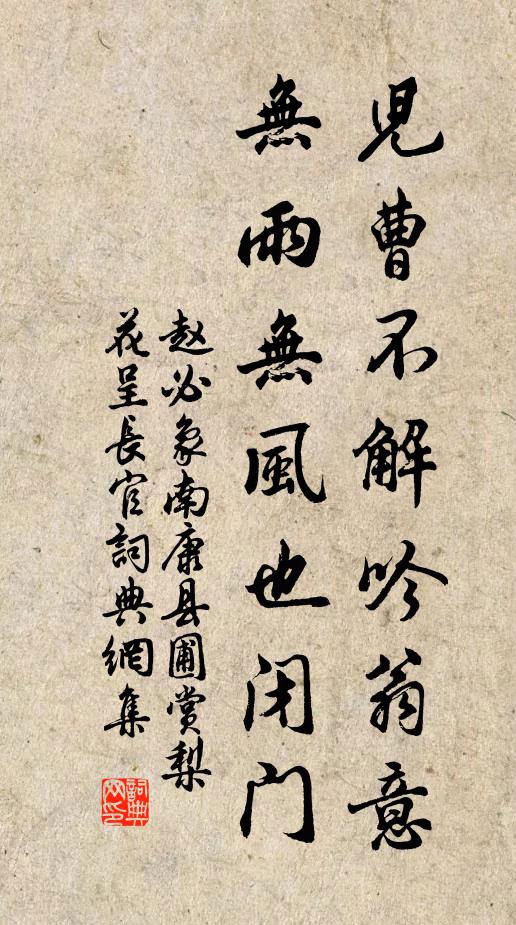 児曹不解吟翁意
無雨無風也闭门
赵必象南康县圃赏梨
花呈長官詞典網集
詞典网印